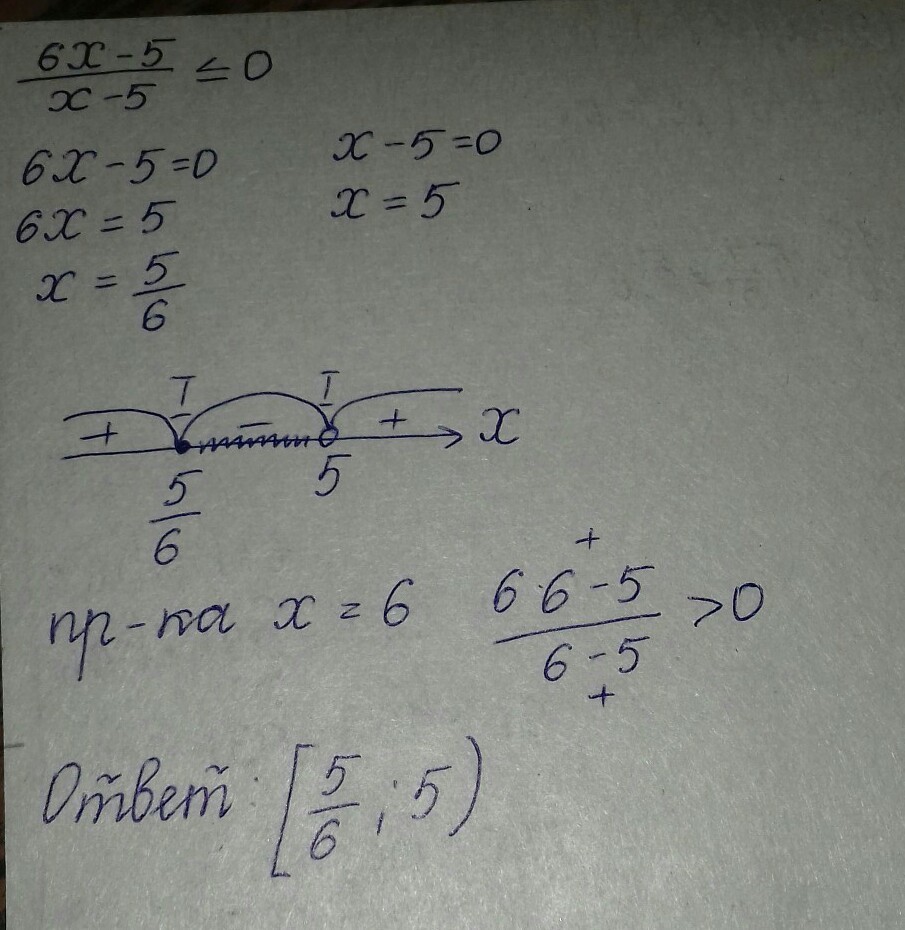 (6x-5)/(x-5) ≤ 0
6x-5=0    x-5=0
6x = 5    x = 5
x = 5/6
I I
+ - + x
5/6 5
пр-ка x = 6    (6·6-5)/(6-5) >0
+
+
Ответ: [5/6 ; 5)